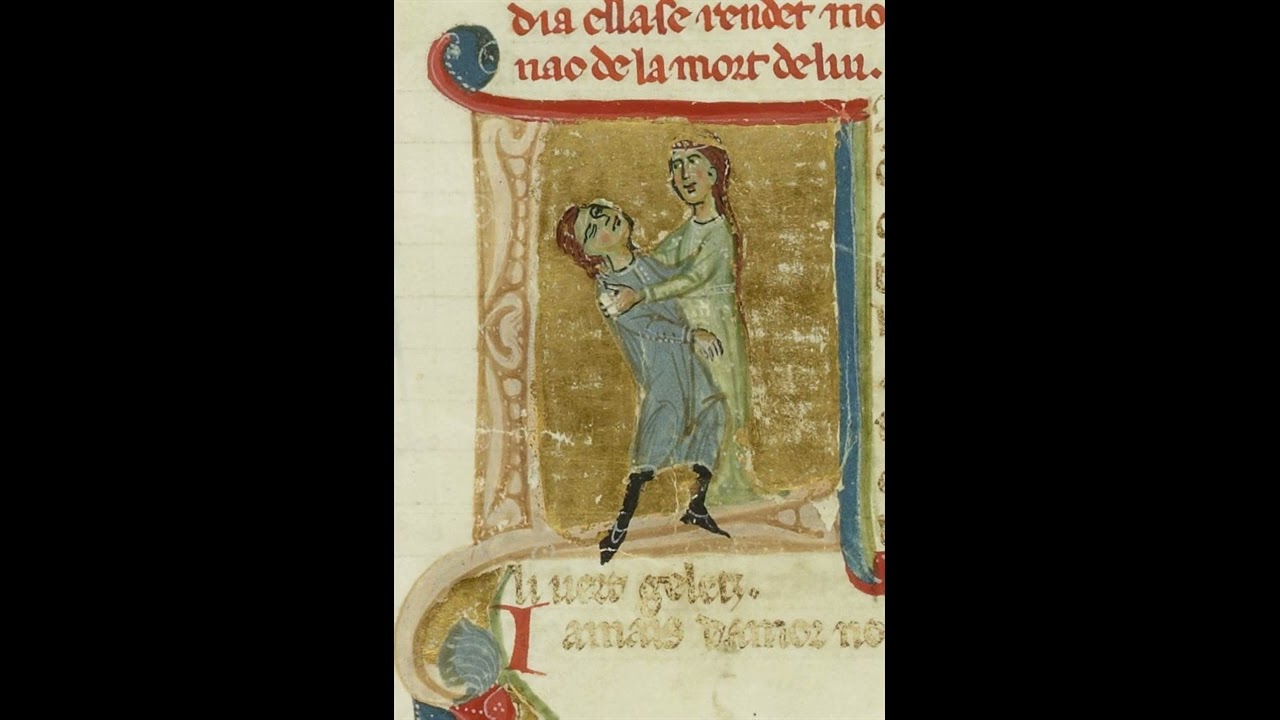 dia ellase rendet mo
nao de la mort de lui.
li uert geletz.
I amais damor no